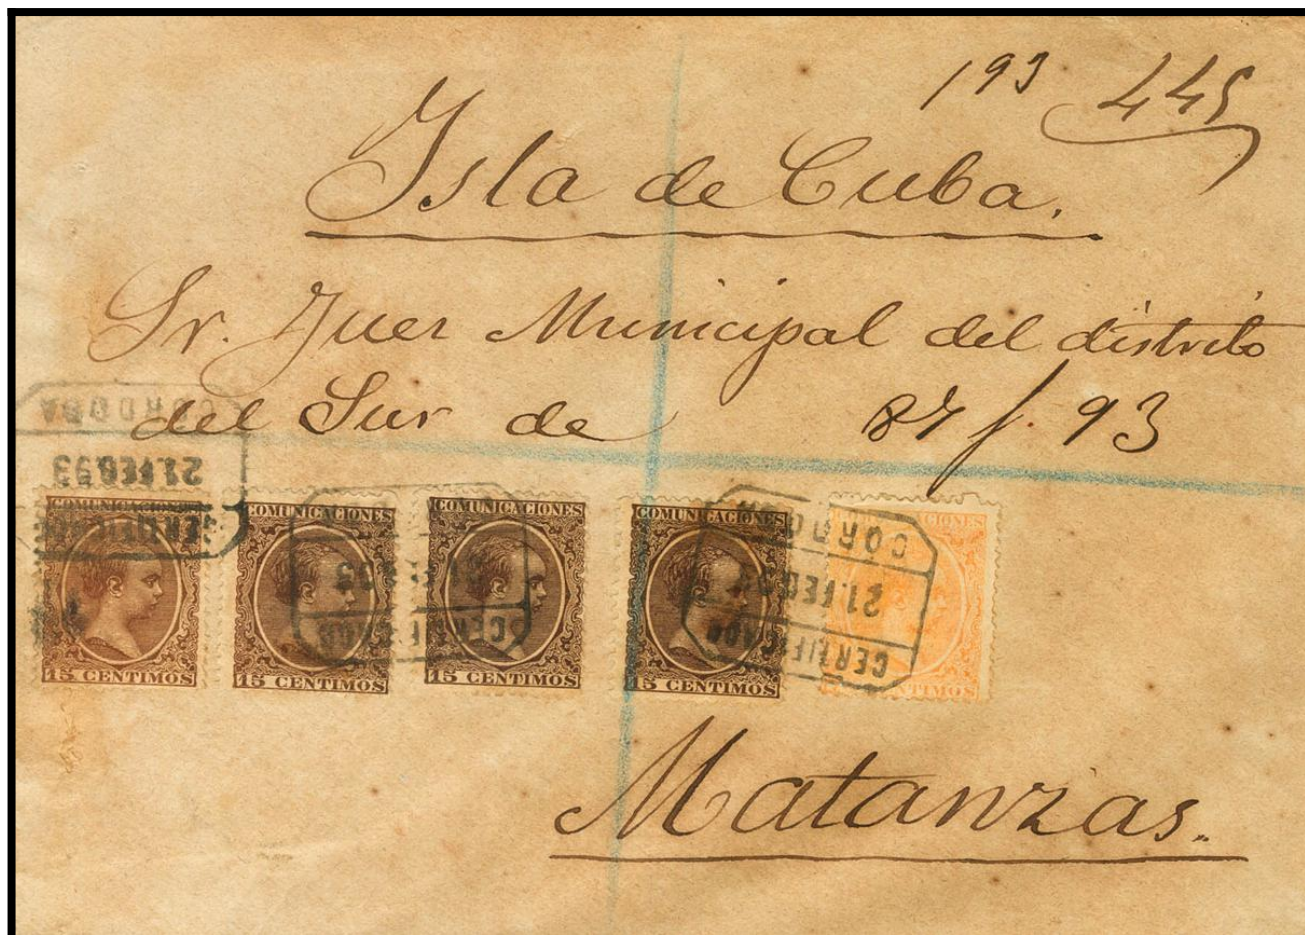 193 445
Isla de Cuba.
Sr. Juez Municipal del distrito
del Sur de 87 f. 93
CORDOBA
21.FEB.93
CERTIFICADO
COMUNICACIONES
15 CENTIMOS
COMUNICACIONES
15 CENTIMOS
COMUNICACIONES
15 CENTIMOS
CERTIFICADO
COMUNICACIONES
15 CENTIMOS
CORDOBA
21.FEB.93
CERTIFICADO
Matanzas.